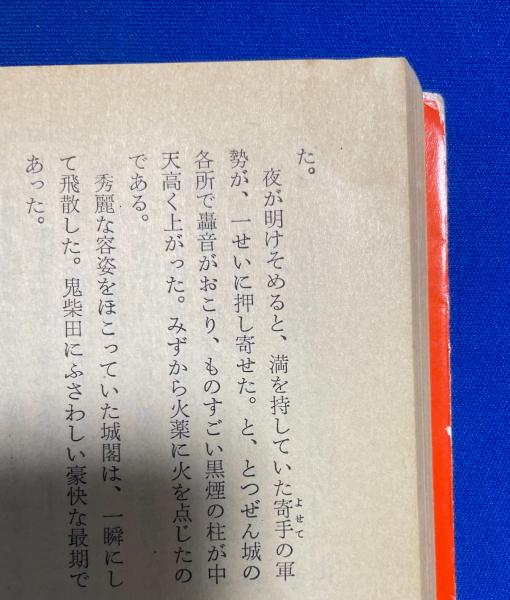 た。
夜が明けそめると、満を持していた寄手の軍
よせて
勢が、一せいに押し寄せた。と、とつぜん城の
各所で轟音がおこり、ものすごい黒煙の柱が中
天高く上がった。みずから火薬に火を点じたの
である。
秀麗な容姿をほこっていた城閣は、一瞬にし
て飛散した。鬼柴田にふさわしい豪快な最期で
あった。